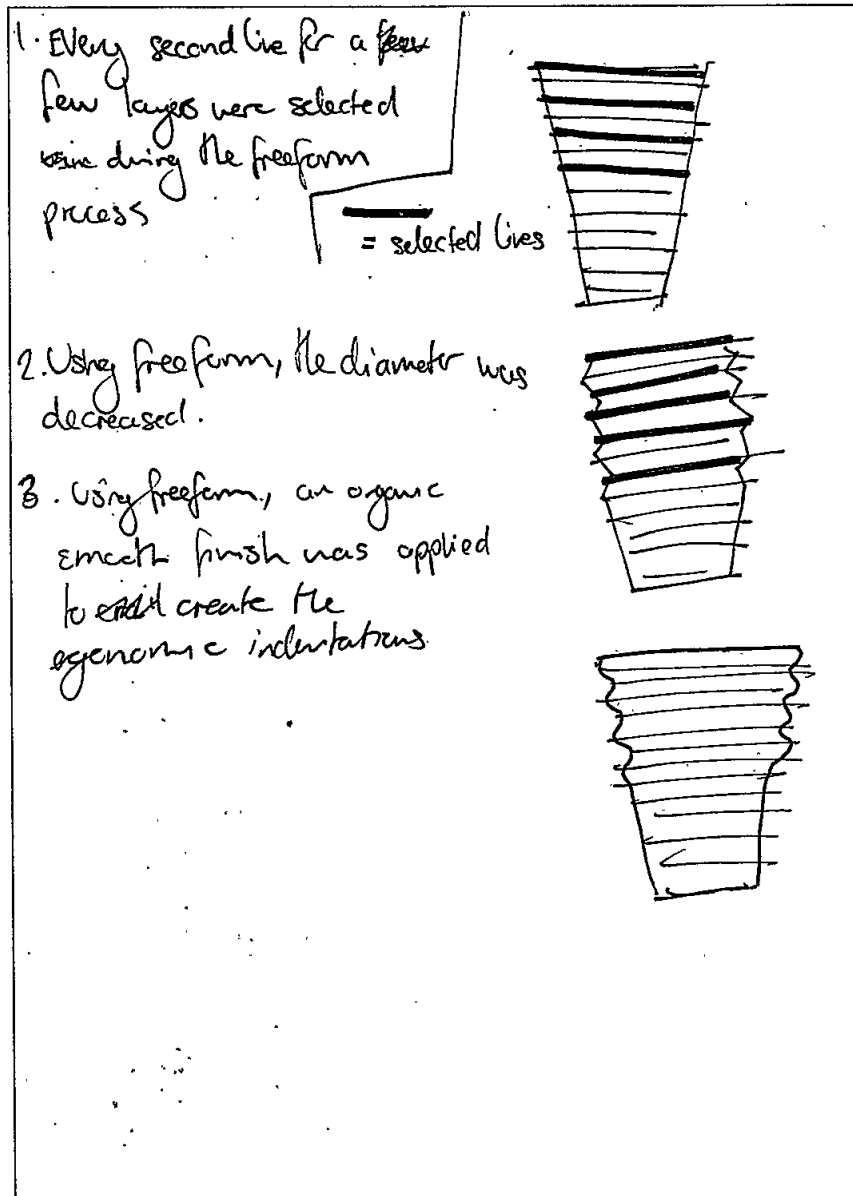 1. Every second line for a
few layers were selected
during the freeform
process
= selected lines
2. Using freeform, the diameter was
decreased.
3. Using freeform, an organic
smooth finish was applied
to create the
egonomic indentations